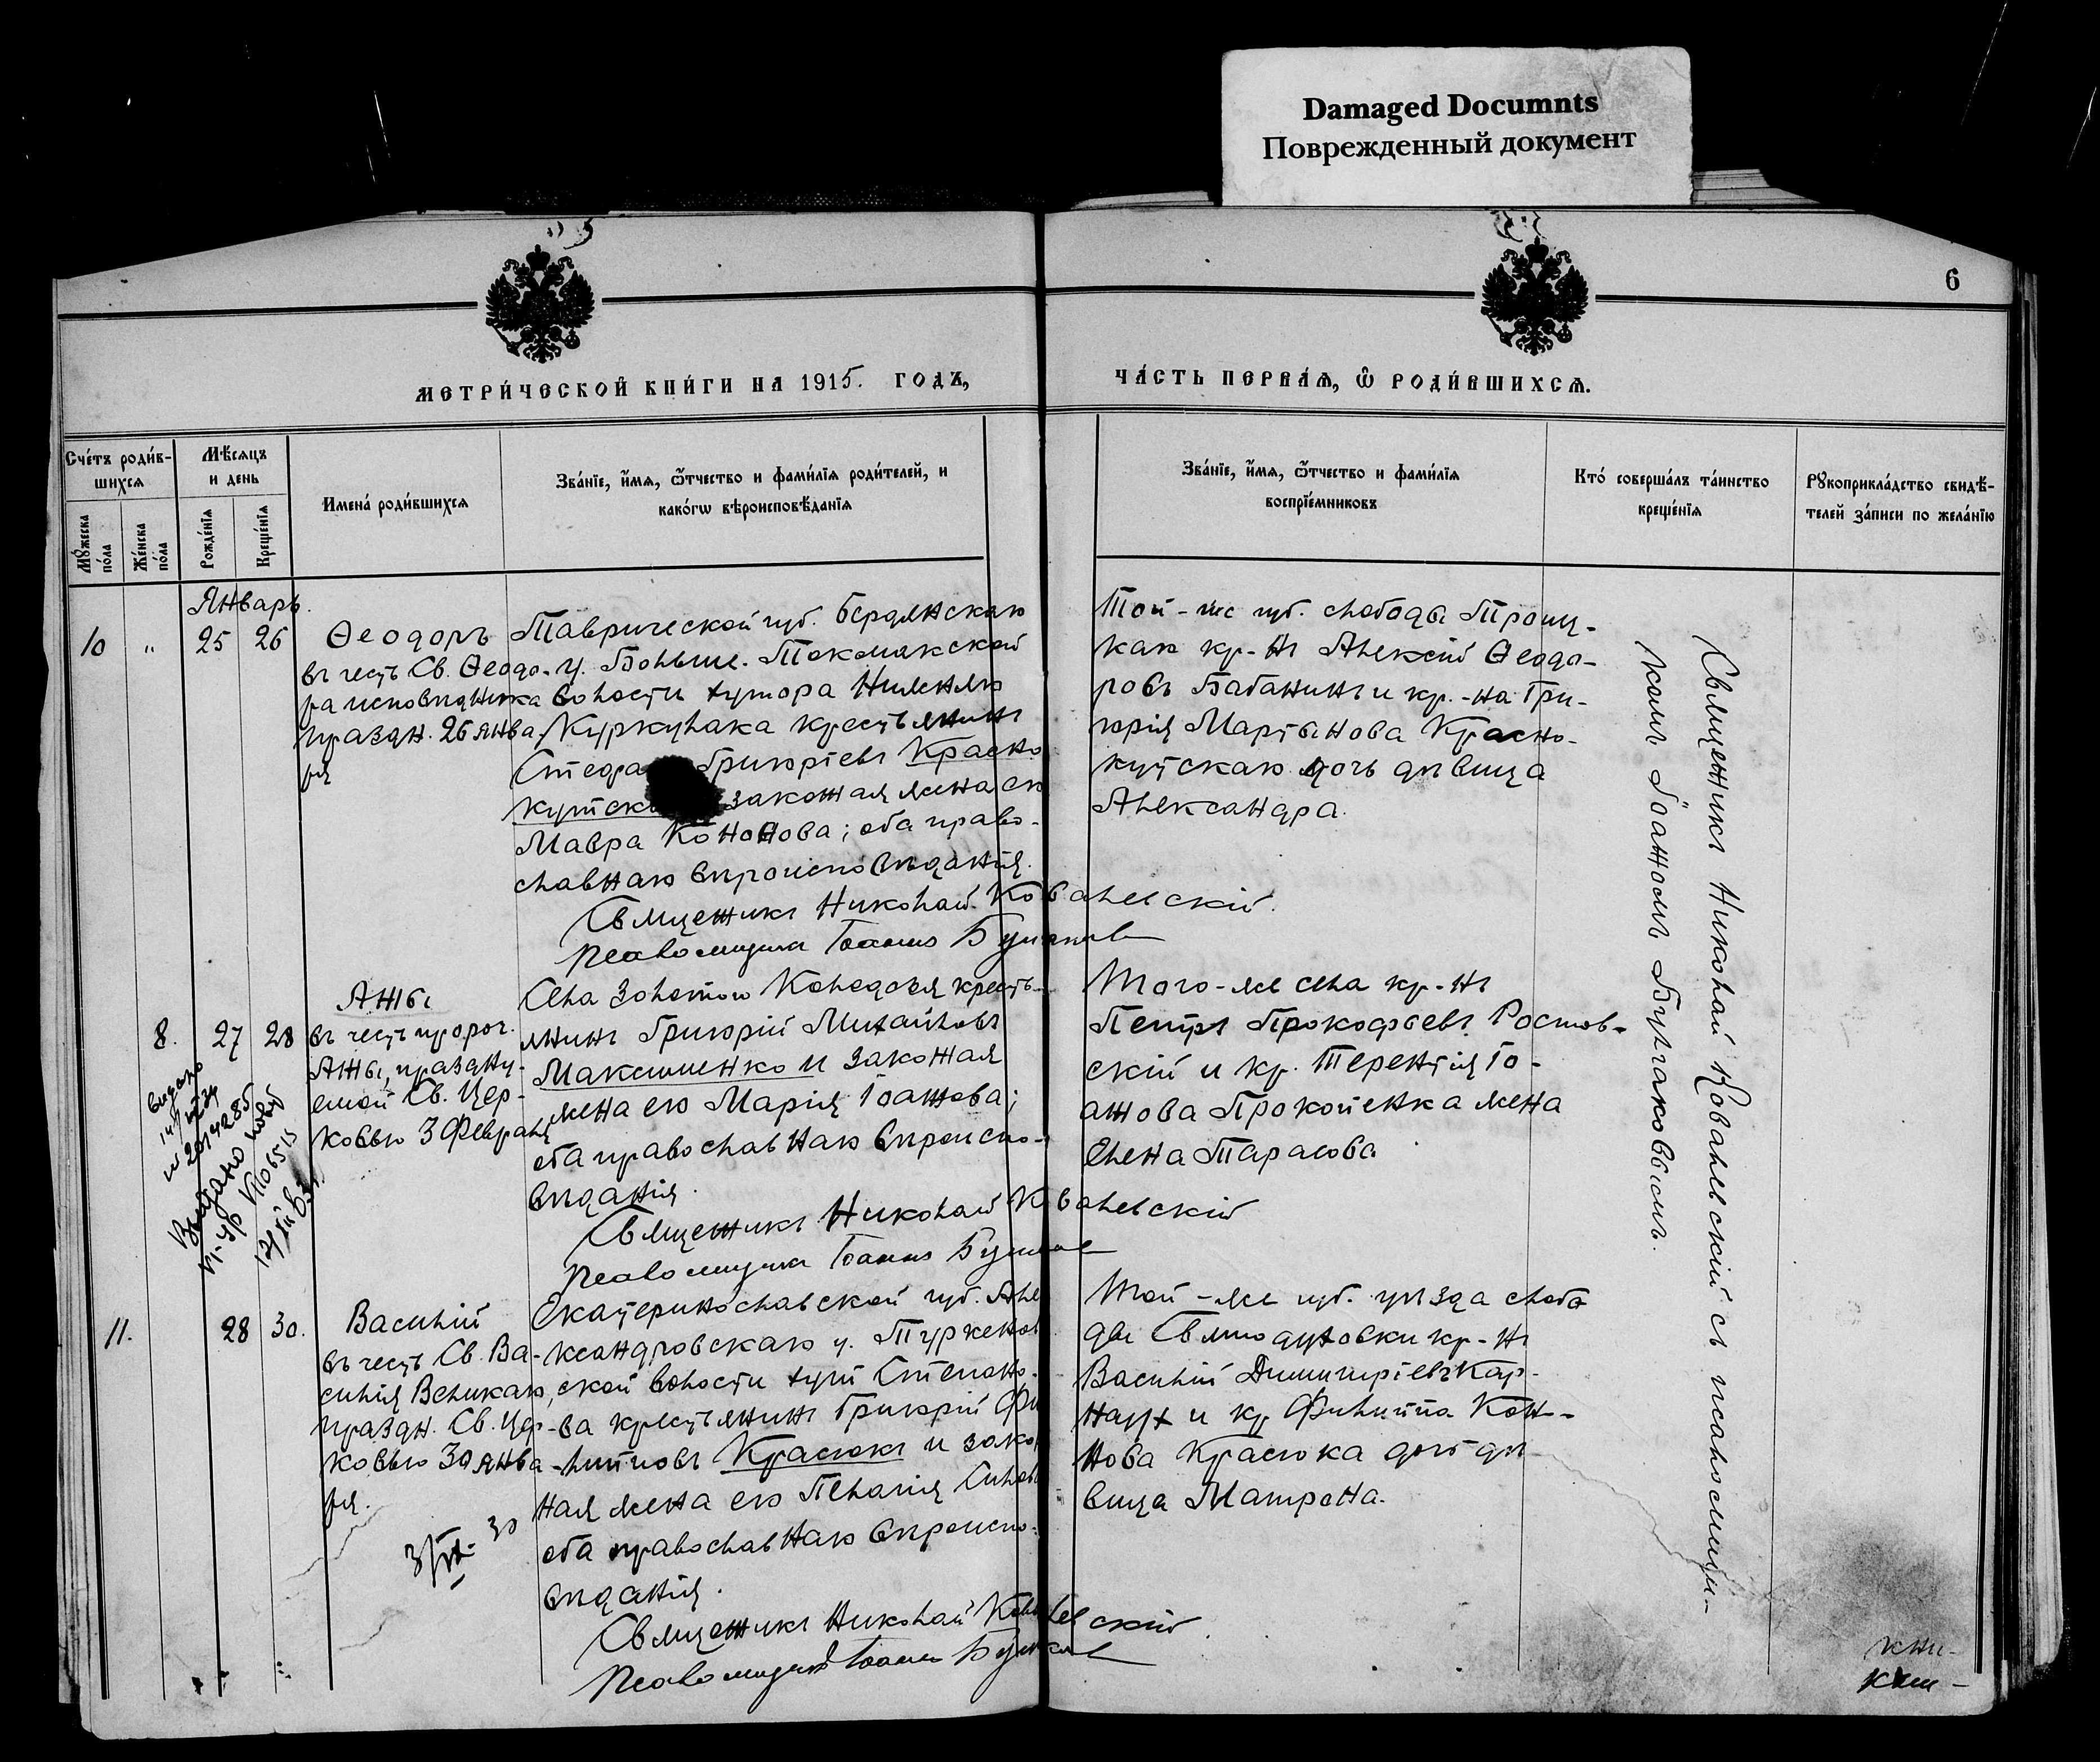 Damaged Documnts
Поврежденный документ
6
МЕТРИ́ЧЕСКОЙ КНИ́ГИ НА 1915. ГОДЪ,
ЧА́СТЬ ПЕРВА́Ѧ, Ѿ РОДИ́ВШИХСѦ.
Сче́тъ роди́в-
шихсѧ
Мѣ́сѧцъ
и день
Имена̀ роди́вшихсѧ
Зва́нїе, и́мѧ, ѻ́тчество и фами́лїѧ роди́телей, и
како́гѡ вѣроисповѣ́данїѧ
Мꙋ́жеска
по́ла
Же́нска
по́ла
Рожде́нїѧ
Креще́нїѧ
Зва́нїе, и́мѧ, ѻ́тчество и фами́лїѧ
воспрїе́мниковъ
Кто̀ соверша́лъ та́инство
креще́нїѧ
Рꙋкоприкла́дство свидѣ́-
телей за́писи по жела́нїю
Январь.
10 " 25 26
Ѳеодоръ
въ честь Св. Ѳеодо-
ра исповѣдника
праздн. 26 янва-
ря
Таврической губ. Бердянскаго
у. Больше-Токмакской
волости хутора Нижняго
Куркулака крестьянинъ
Григорiевъ Красно
законная жена его
Мавра Кононова; оба право-
славнаго вѣроисповѣданiя.
Священникъ Николай Ковалевскiй.
Псаломщикъ Iоаннъ
Той-же губ. слободы Троиц-
каго кр-нъ Алексiй Ѳеодо-
ровъ Бабанинъ и кр.-на Гри-
горiя Мартынова Красно-
кутскаго дочь дѣвица
Александра.
Священникъ Николай Ковалевскiй съ псаломщи-
комъ Iоанномъ Булгаковымъ.
8. 27 28
Анны
въ честь пророч.
Анны, праздну-
емой Св. Цер-
ковью 3 Февраля
Села Золотого Колодезя кресть-
янинъ Григорiй Михайловъ
Максименко и законная
жена его Марiя Iоаннова;
оба православнаго вѣроиспо-
вѣданiя.
Священникъ Николай Ковалевскiй
Псаломщикъ Iоаннъ
Того-же села кр-нъ
Петръ Прокофьевъ Ростов-
скiй и кр. Терентiя Iо-
аннова Прокопенка жена
Елена Тарасова
11. 28 30.
Василiй
въ честь Св. Ва-
силiя Великаго,
праздн. Св. Цер-
ковью 30 янва-
ря.
Екатеринославской губ. Але
ксандровскаго у. Туркенов
ской волости хут. Степано-
ва крестьянинъ Григорiй Фи
липповъ Красюкъ и закон
ная жена его Пелагiя
оба православнаго вѣроиспо-
вѣданiя.
Священникъ Николай Ковалевскiй
Псаломщикъ Iоаннъ
Той-же губ. уѣзда слобо
ды Святодуховки кр-нъ
Василiй Димитрiевъ Кар-
наух и кр. Филиппа
нова Красюка дочь дѣ-
вица Матрона.